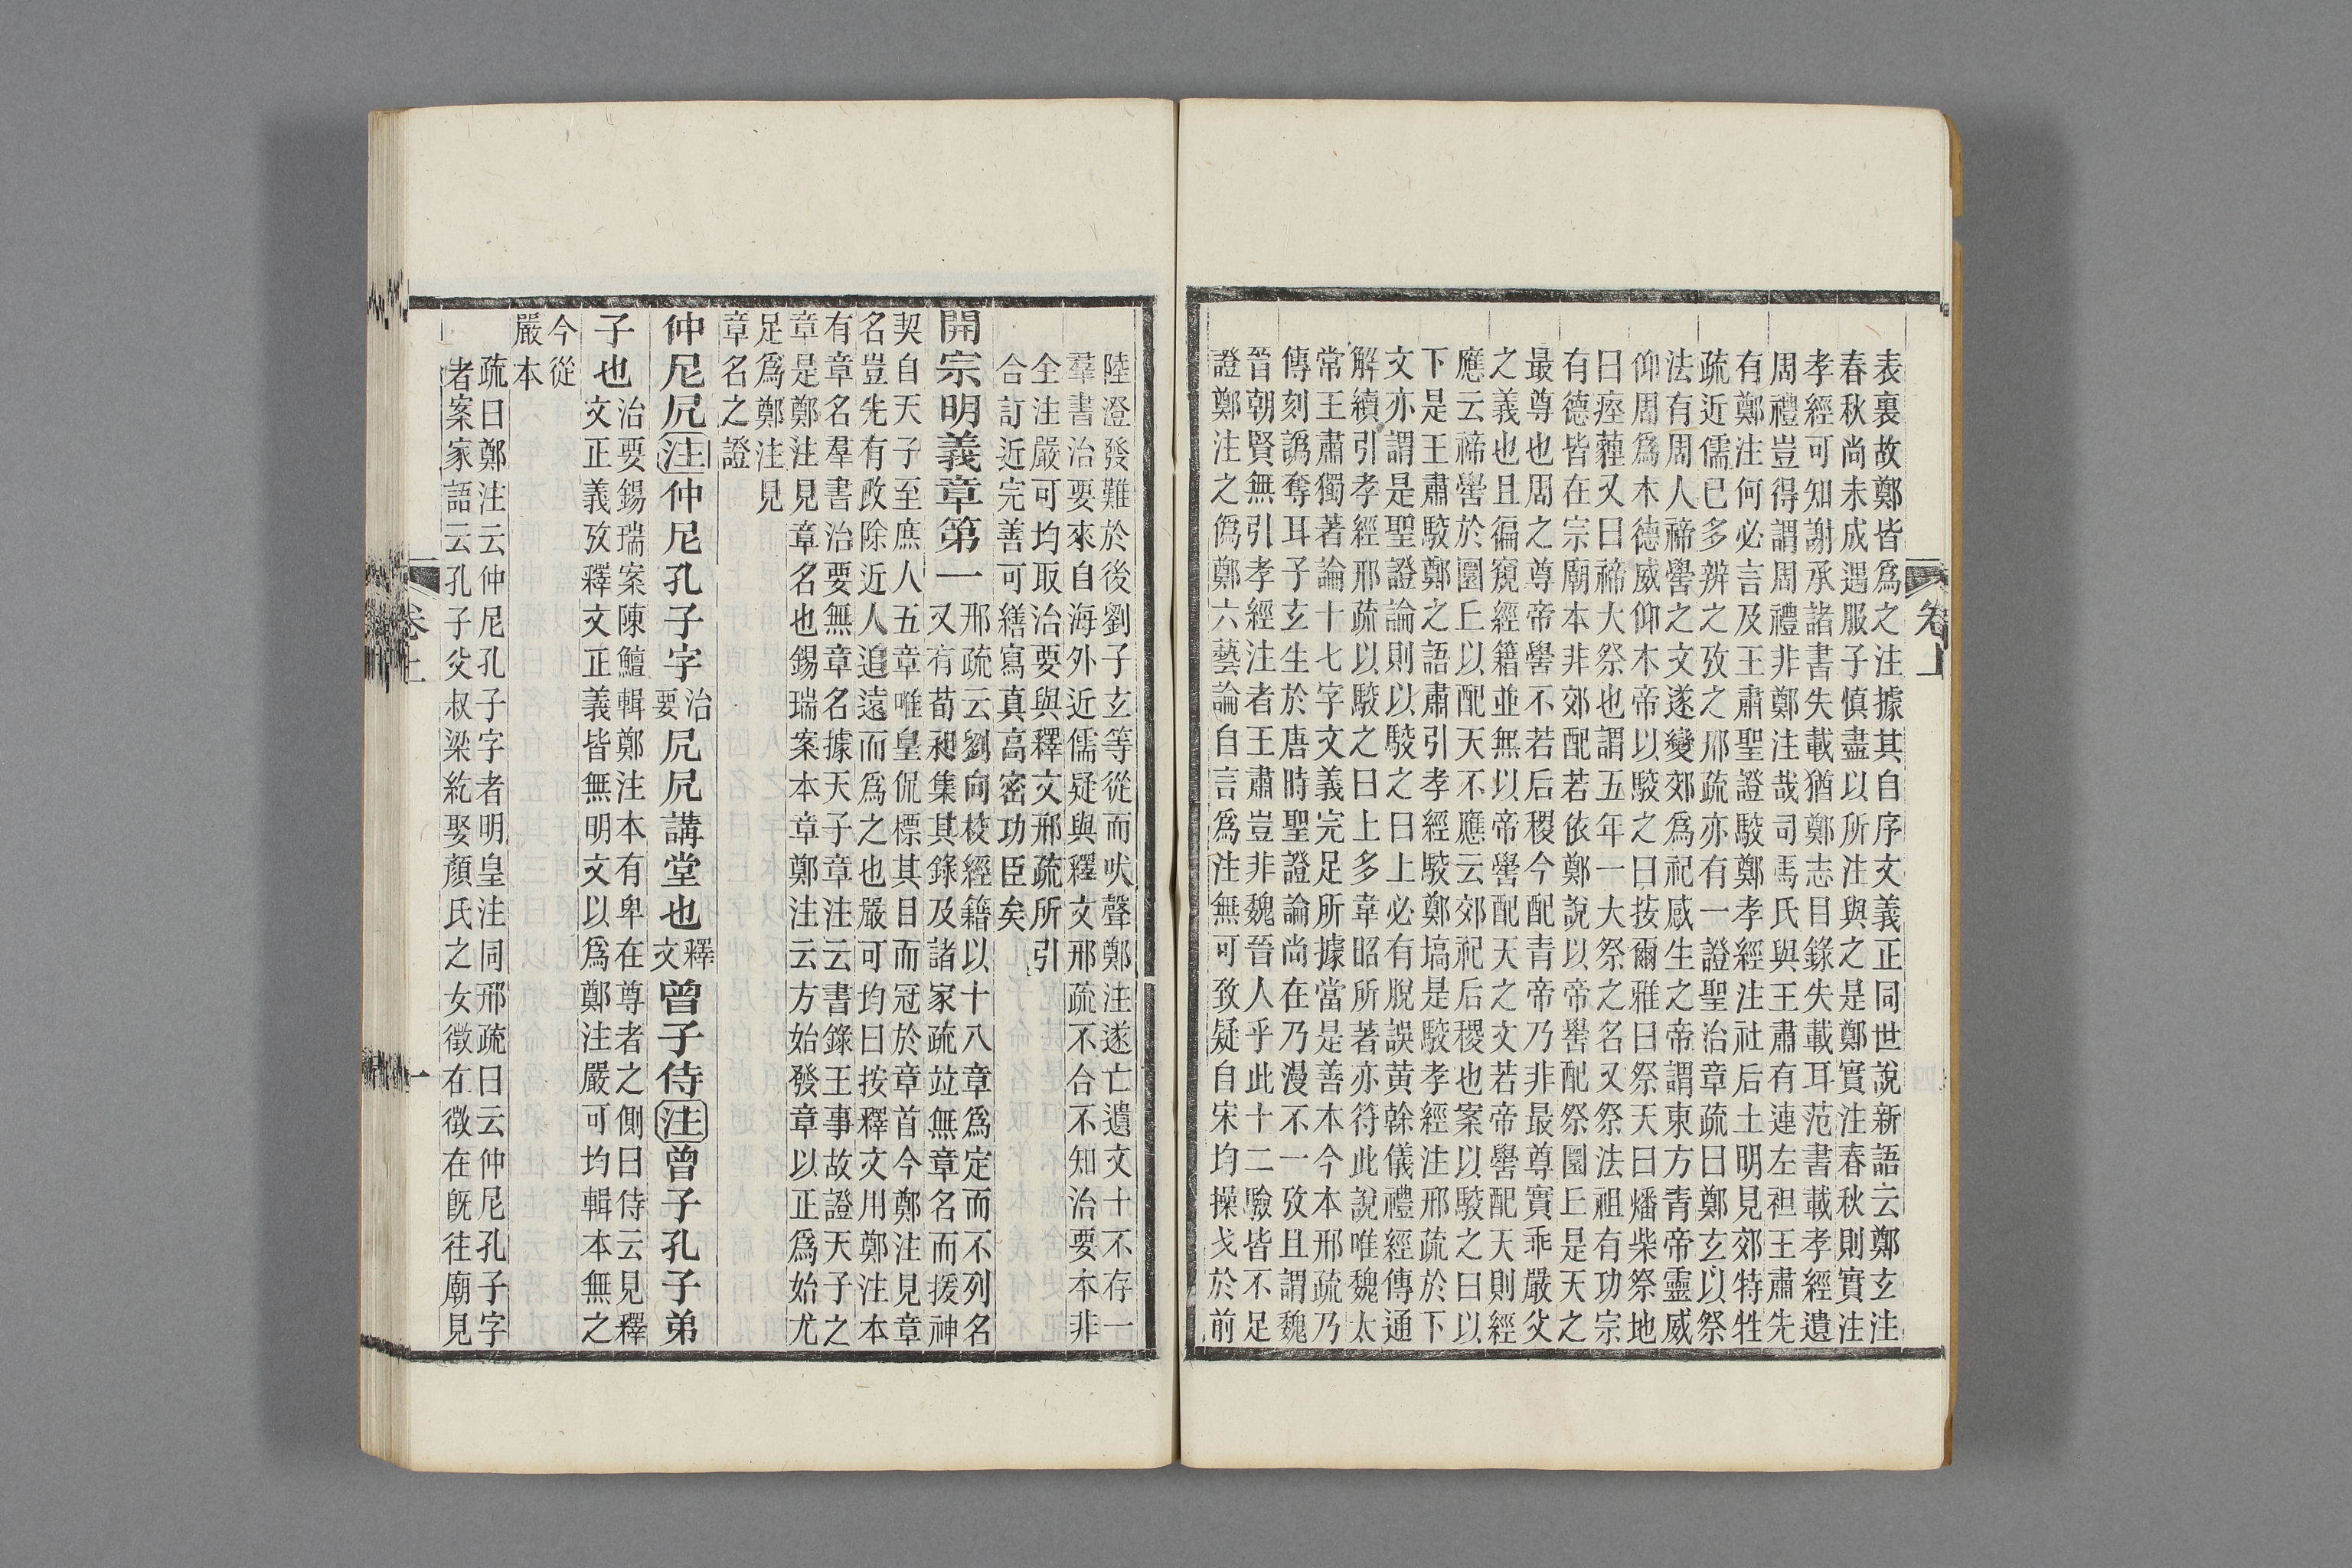 卷上
表裏故鄭皆爲之注據其自序文義正同世說新語云鄭玄注
春秋尚未成遇服子慎盡以所注與之是鄭實注春秋則實注
孝經可知謝承諸書失載猶鄭志目錄失載耳范書載孝經遺
周禮豈得謂周禮非鄭注哉司馬氏與王肅有連左袒王肅先
有鄭注何必言及王肅聖證駮鄭孝經注社后土明見郊特牲
疏近儒已多辨之攷之邢疏亦有一證聖治章疏曰鄭玄以祭
法有周人禘嚳之文遂變郊爲祀感生之帝謂東方青帝靈威
仰周爲木德威仰木帝以駮之曰按爾雅曰祭天曰燔柴祭地
曰瘞薶又曰禘大祭也謂五年一大祭之名又祭法祖有功宗
有德皆在宗廟本非郊配若依鄭說以帝嚳配祭圜丘是天之
最尊也周之尊帝嚳不若后稷今配青帝乃非最尊實乖嚴父
之義也且徧窺經籍並無以帝嚳配天之文若帝嚳配天則經
應云禘嚳於圜丘以配天不應云郊祀后稷也案以駮之曰以
下是王肅駮鄭之語肅引孝經駮鄭塙是駮孝經注邢疏於下
文亦謂是聖證論則以駮之曰上必有脫誤黃榦儀禮經傳通
解續引孝經邢疏以駮之曰上多韋昭所著亦符此說唯魏太
常王肅獨著論十七字文義完足所據當是善本今本邢疏乃
傳刻譌奪耳子玄生於唐時聖證論尚在乃漫不一攷且謂魏
晉朝賢無引孝經注者王肅豈非魏晉人乎此十二驗皆不足
證鄭注之僞鄭六藝論自言爲注無可致疑自宋均操戈於前
陸澄發難於後劉子玄等從而吠聲鄭注遂亡遺文十不存一
羣書治要來自海外近儒疑與釋文邢疏不合不知治要本非
全注嚴可均取治要與釋文邢疏所引
合訂近完善可繕寫真高密功臣矣
開宗明義章第一
邢疏云劉向校經籍以十八章爲定而不列名
又有荀昶集其錄及諸家疏竝無章名而援神
契自天子至庶人五章唯皇侃標其目而冠於章首今鄭注見章
名豈先有改除近人追遠而爲之也嚴可均曰按釋文用鄭注本
有章名羣書治要無章名據天子章注云書錄王事故證天子之
章是鄭注見章名也錫瑞案本章鄭注云方始發章以正爲始尤
足爲鄭注見
章名之證
仲尼凥注仲尼孔子字治要凥凥講堂也釋文曾子侍注曾子孔子弟
子也治要錫瑞案陳鱣輯鄭注本有卑在尊者之側曰侍云見釋
文正義攷釋文正義皆無明文以爲鄭注嚴可均輯本無之
今從
嚴本
疏曰鄭注云仲尼孔子字者明皇注同邢疏曰云仲尼孔子字
者案家語云孔子父叔梁紇娶顏氏之女徵在徵在既往廟見
卷上
一